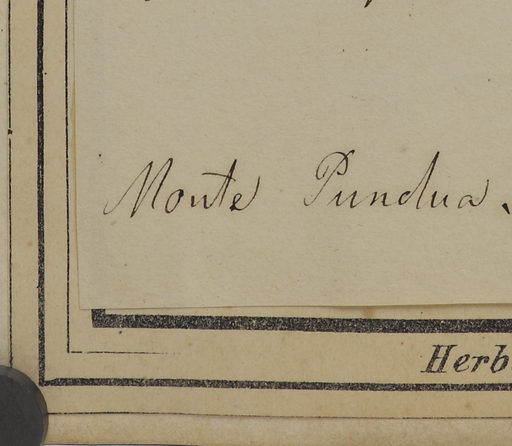 Monte Pundua.
Herb